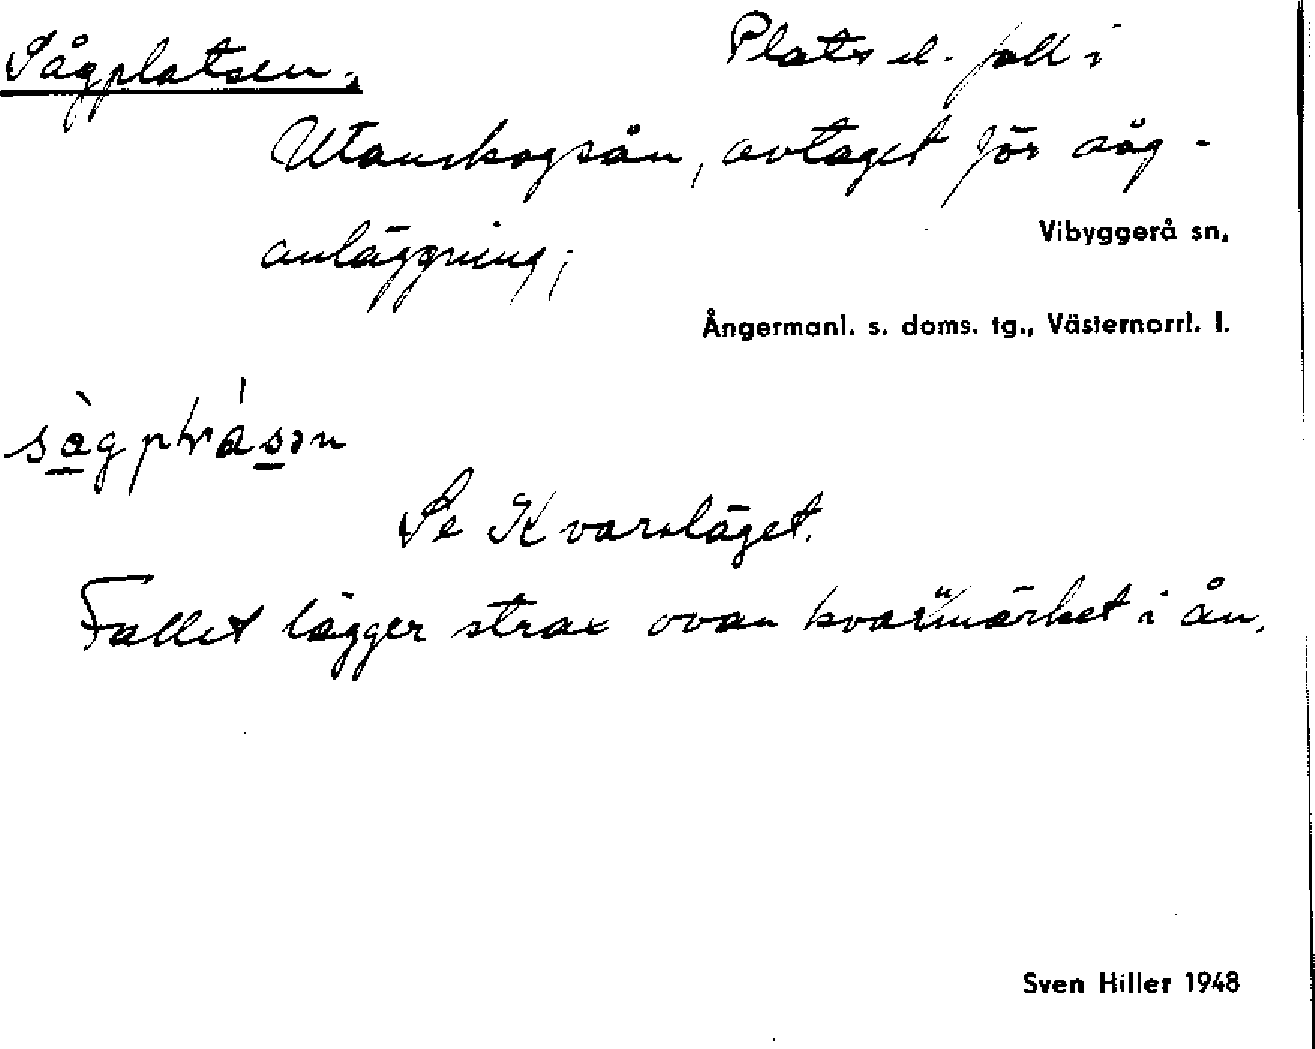 Sågplatsen, Plats el. fall i
Utanskogsån, avtaget för såg-
anläggning;
Vibyggerå sn,
Ångermanl. s. doms. tg., Västernorrl. l.
Se Kvarnläget.
Fallet lägger strax ovan kvarnmärket i ån.
Sven Hiller 1948